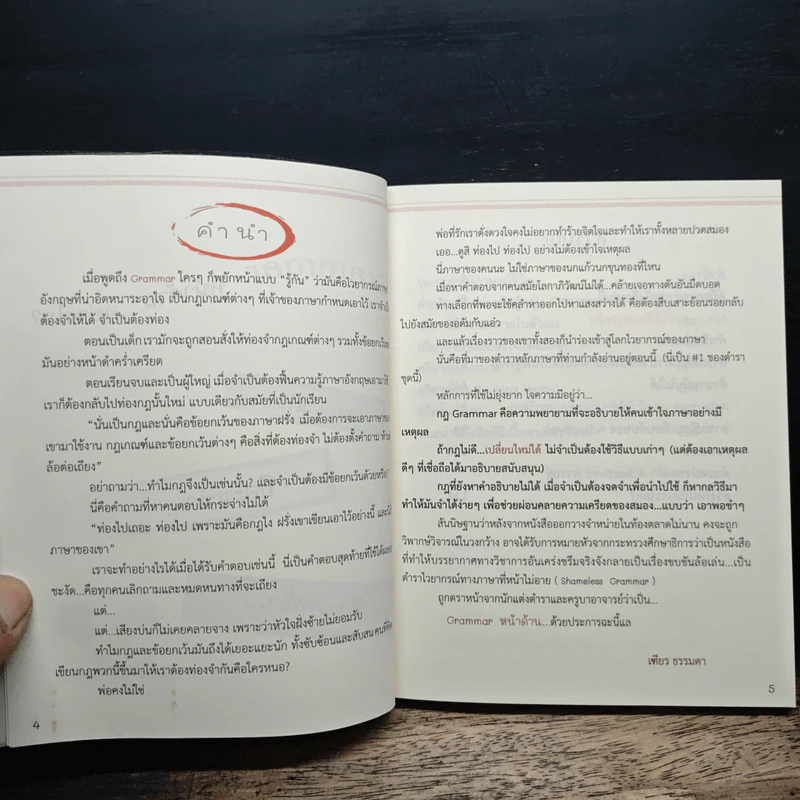 คำ นำ
เมื่อพูดถึง Grammar ใครๆ ก็พยักหน้าแบบ “รู้กัน” ว่ามันคือไวยากรณ์ภาษา
อังกฤษที่น่าอิดหนาระอาใจ เป็นกฎเกณฑ์ต่างๆ ที่เจ้าของภาษากำหนดเอาไว้
ต้องจำให้ได้ จำเป็นต้องท่อง
ตอนเป็นเด็ก เรามักจะถูกสอนสั่งให้ท่องจำกฎเกณฑ์ต่างๆ รวมทั้งข้อยกเว้น
มันอย่างหน้าดำคร่ำเครียด
ตอนเรียนจบและเป็นผู้ใหญ่ เมื่อจำเป็นต้องฟื้นความรู้ภาษาอังกฤษเอามาใช้
เราก็ต้องกลับไปท่องกฎนั้นใหม่ แบบเดียวกับสมัยที่เป็นนักเรียน
“นั่นเป็นกฎและนั่นคือข้อยกเว้นของภาษาฝรั่ง เมื่อต้องการจะเอาภาษาของ
เขามาใช้งาน กฎเกณฑ์และข้อยกเว้นต่างๆ คือสิ่งที่ต้องท่องจำ ไม่ต้องตั้งคำถาม
ล้อต่อเถียง”
อย่าถามว่า...ทำไมกฎจึงเป็นเช่นนั้น? และจำเป็นต้องมีข้อยกเว้นด้วยหรือ
นี่คือคำถามที่หาคนตอบให้กระจ่างไม่ได้
“ท่องไปเถอะ ท่องไป เพราะมันคือกฎไง ฝรั่งเขาเขียนเอาไว้อย่างนี้
ภาษาของเขา”
เราจะทำอย่างไรได้เมื่อได้รับคำตอบเช่นนี้ นี่เป็นคำตอบสุดท้ายที่ใช้ได้ผล
ชะงัด...คือทุกคนเลิกถามและหมดหนทางที่จะเถียง
แต่...
แต่...เสียงบ่นก็ไม่เคยคลายจาง เพราะว่าหัวใจฝั่งซ้ายไม่ยอมรับ
ทำไมกฎและข้อยกเว้นมันถึงได้เยอะแยะนัก ทั้งซับซ้อนและสับสน คนที่คิด
เขียนกฎพวกนี้ขึ้นมาให้เราต้องท่องจำกันคือใครหนอ?
พ่อคงไม่ใช่
4
พ่อที่รักเราดั่งดวงใจคงไม่อยากทำร้ายจิตใจและทำให้เราทั้งหลายปวดสมอง
เออ...ดูสิ ท่องไป ท่องไป อย่างไม่ต้องเข้าใจเหตุผล
นี่ภาษาของคนนะ ไม่ใช่ภาษาของนกแก้วนกขุนทองที่ไหน
เมื่อหาคำตอบจากคนสมัยโลกาภิวัฒน์ไม่ได้...คล้ายเจอทางตันอันมืดบอด
ทางเลือกที่พอจะใช้คลำหาออกไปหาแสงสว่างได้ คือต้องสืบเสาะย้อนรอยกลับ
ไปยังสมัยของอดัมกับแอ๋ว
และแล้วเรื่องราวของเขาทั้งสองก็นำร่องเข้าสู่โลกไวยากรณ์ของภาษา
นั่นคือที่มาของตำราหลักภาษาที่ท่านกำลังอ่านอยู่ตอนนี้ (นี่เป็น #1 ของตำรา
ชุดนี้)
หลักการที่ใช้ไม่ยุ่งยาก ใจความมีอยู่ว่า...
กฎ Grammar คือความพยายามที่จะอธิบายให้คนเข้าใจภาษาอย่างมี
เหตุผล
ถ้ากฎไม่ดี...เปลี่ยนใหม่ได้ ไม่จำเป็นต้องใช้วิธีแบบเก่าๆ (แต่ต้องเอาเหตุผล
ดีๆ ที่เชื่อถือได้มาอธิบายสนับสนุน)
กฎที่ยังหาคำอธิบายไม่ได้ เมื่อจำเป็นต้องจดจำเพื่อนำไปใช้ ก็หากลวิธีมา
ทำให้มันจำได้ง่ายๆ เพื่อช่วยผ่อนคลายความเครียดของสมอง...แบบว่า เอาพอขำๆ
สันนิษฐานว่าหลังจากหนังสือออกวางจำหน่ายในท้องตลาดไม่นาน คงจะถูก
วิพากษ์วิจารณ์ในวงกว้าง อาจได้รับการหมายหัวจากกระทรวงศึกษาธิการว่าเป็นหนังสือ
ที่ทำให้บรรยากาศทางวิชาการอันเคร่งขรึมจริงจังกลายเป็นเรื่องขบขันล้อเล่น...เป็น
ตำราไวยากรณ์ทางภาษาที่หน้าไม่อาย ( Shameless Grammar )
ถูกตราหน้าจากนักแต่งตำราและครูบาอาจารย์ว่าเป็น...
Grammar หน้าด้าน...ด้วยประการฉะนี้แล
เฑียร ธรรมดา
5